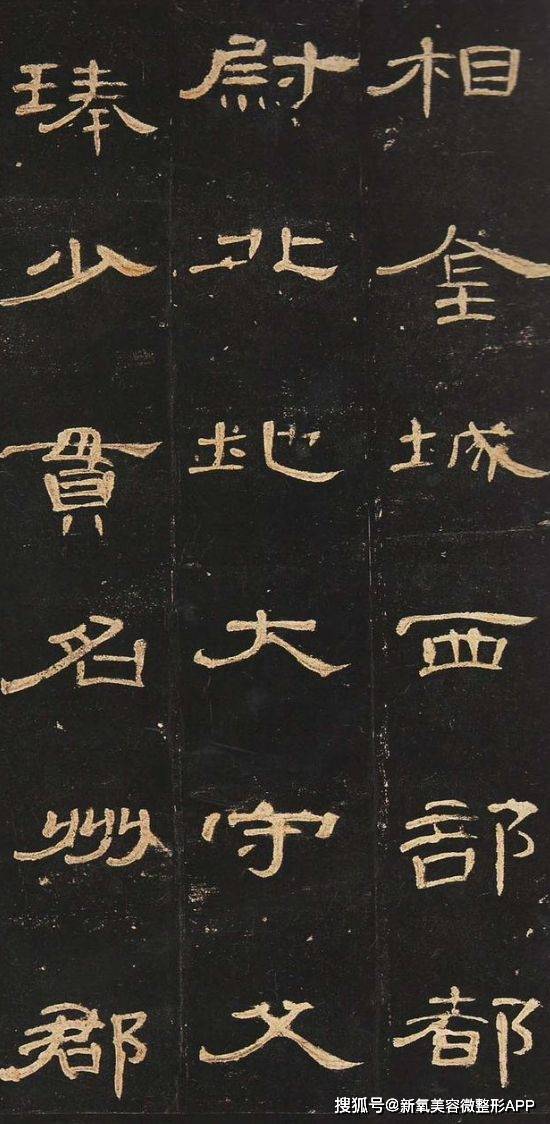 相金城西部都
尉北地大守父
琫少貫名州郡
搜狐号@新氧美容微整形APP